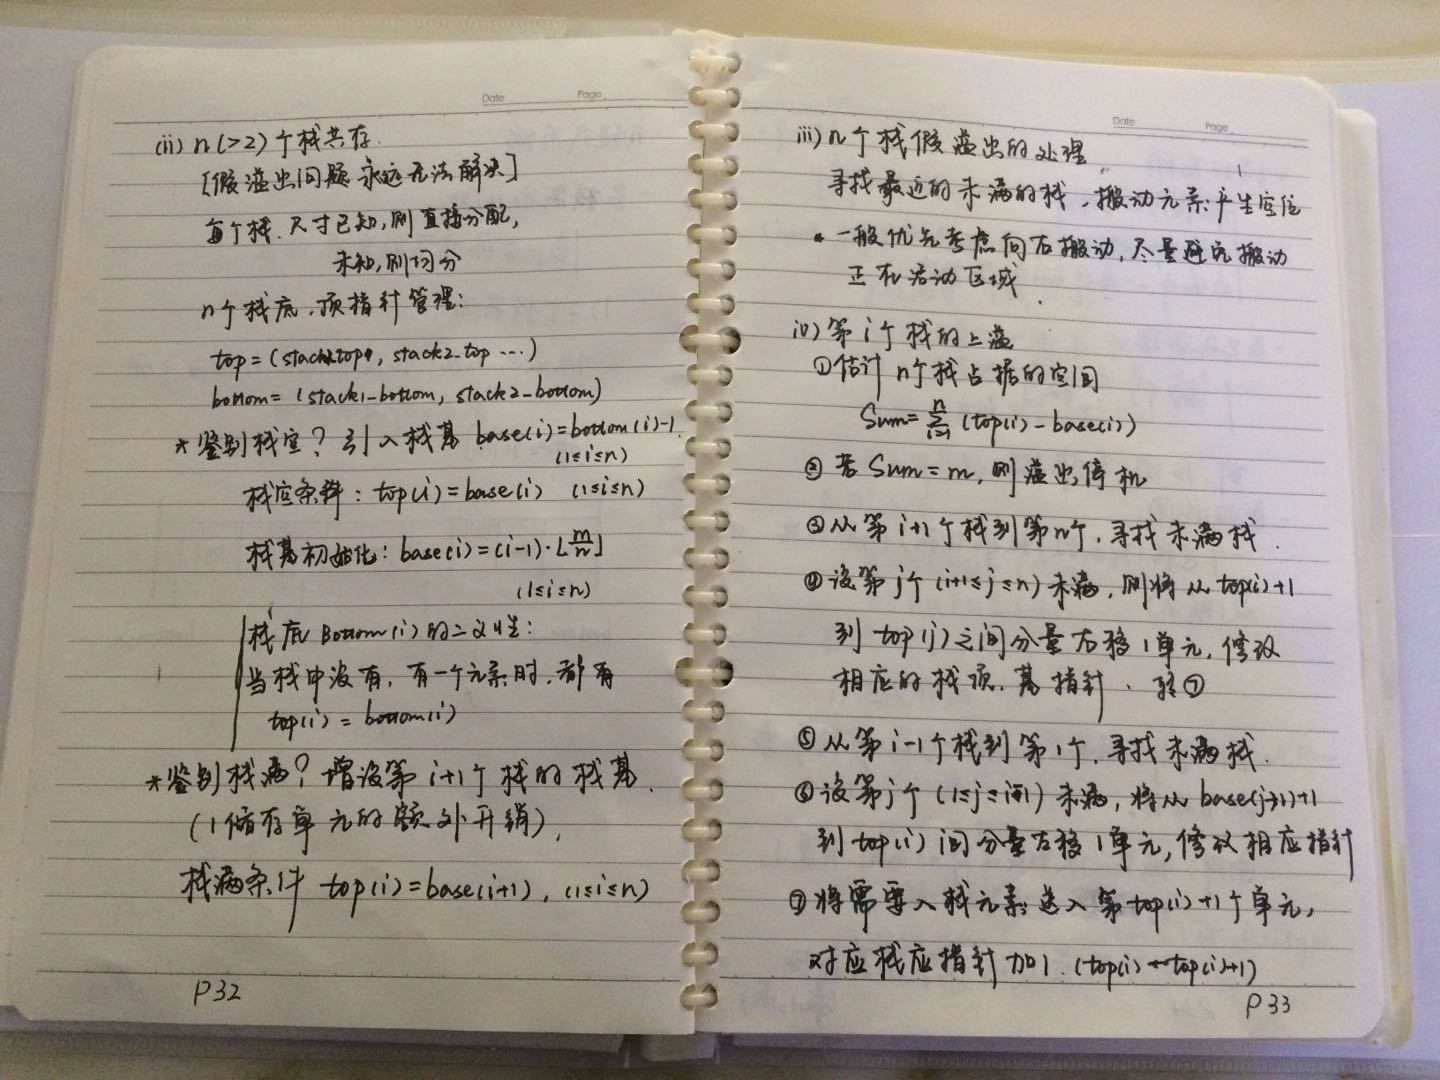 Date Page
(ii) n(>2)个栈共存.
[假溢出问题永远无法解决]
每个栈.尺寸已知,则直接分配,
未知,则均分
n个栈底.顶指针管理:
top=(stack1-top, stack2-top ...)
bottom=(stack1-bottom, stack2-bottom)
*鉴别栈空? 引入栈基 base(i)=bottom(i)-1.
(1≤i≤n)
栈空条件: top(i)=base(i) (1≤i≤n)
栈基初始化: base(i)=(i-1)·⌊m/n⌋
(1≤i≤n)
栈底Bottom(i)的二义性:
当栈中没有,有一个元素时.都有
top(i) = bottom(i)
*鉴别栈满? 增设第i+1个栈的栈基.
(1储存单元的额外开销),
栈满条件 top(i)=base(i+1), (1≤i≤n)
P32
Date Page
iii) n个栈假溢出的处理
寻找最近的未满的栈,搬动元素产生空位
*一般优先考虑向右搬动,尽量避免搬动
正在活动区域.
iv) 第i个栈的上溢
①估计n个栈占据的空间
Sum=∑(i=1..n) (top(i)-base(i))
②若Sum=m,则溢出停机
③从第i+1个栈到第n个,寻找未满栈.
④设第j个(i+1≤j≤n)未满,则将从top(i)+1
到top(j)之间分量右移1单元,修改
相应的栈顶.基指针.转⑦
⑤从第i-1个栈到第1个,寻找未满栈.
⑥设第j个(1≤j≤i-1)未满,将从base(j+1)+1
到top(i)间分量左移1单元,修改相应指针
⑦将需要入栈元素送入第top(i)+1个单元,
对应栈应指针加1.(top(i)←top(i)+1)
P33